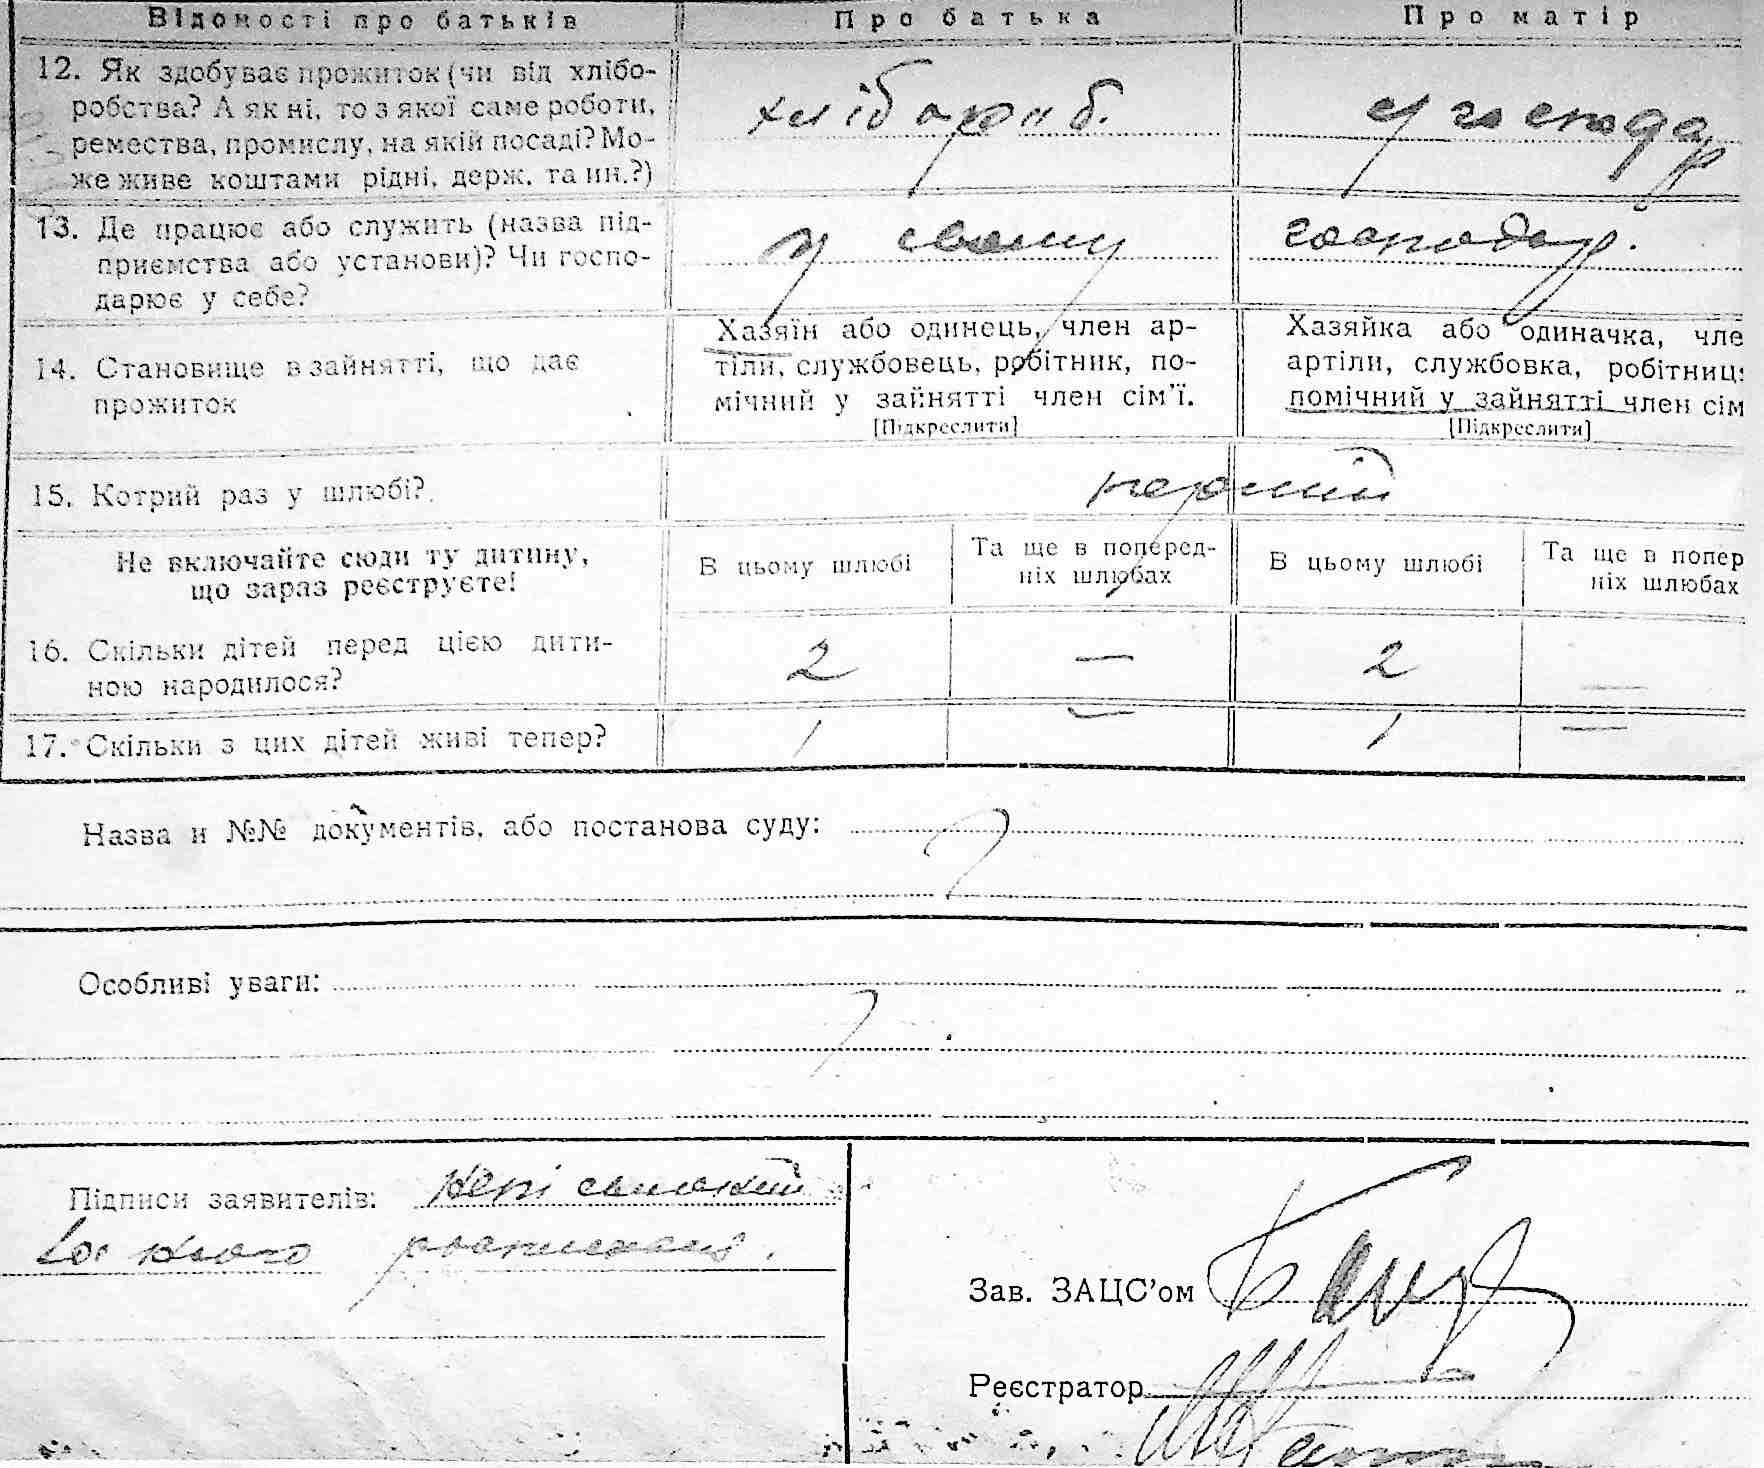 Відомості про батьків Про батька Про матір
12. Як здобуває прожиток (чи від хлібо-
робства? А як ні, то з якої саме роботи,
ремества, промислу, на якій посаді? Мо-
же живе коштами рідні, держ. та ин.?)
хлібороб.
у господар
13. Де працює або служить (назва під-
приємства або установи)? Чи госпо-
дарює у себе?
у своому господар.
14. Становище в зайнятті, що дає
прожиток
Хазяїн або одинець, член ар-
тіли, службовець, робітник, по-
мічний у зайнятті член сім'ї.
[Підкреслити]
Хазяйка або одиначка, чле
артіли, службовка, робітниц
помічний у зайнятті член сім
[Підкреслити]
15. Котрий раз у шлюбі?
перший
Не включайте сюди ту дитину,
що зараз реєструєте!
В цьому шлюбі
Та ще в поперед-
ніх шлюбах
В цьому шлюбі
Та ще в попер
ніх шлюбах
16. Скільки дітей перед цією дити-
ною народилося?
2 — 2 —
17. Скільки з цих дітей живі тепер?
1 — 1 —
Назва и №№ документів, або постанова суду:
Особливі уваги:
Підписи заявителів:
Зав. ЗАЦС'ом
Реєстратор